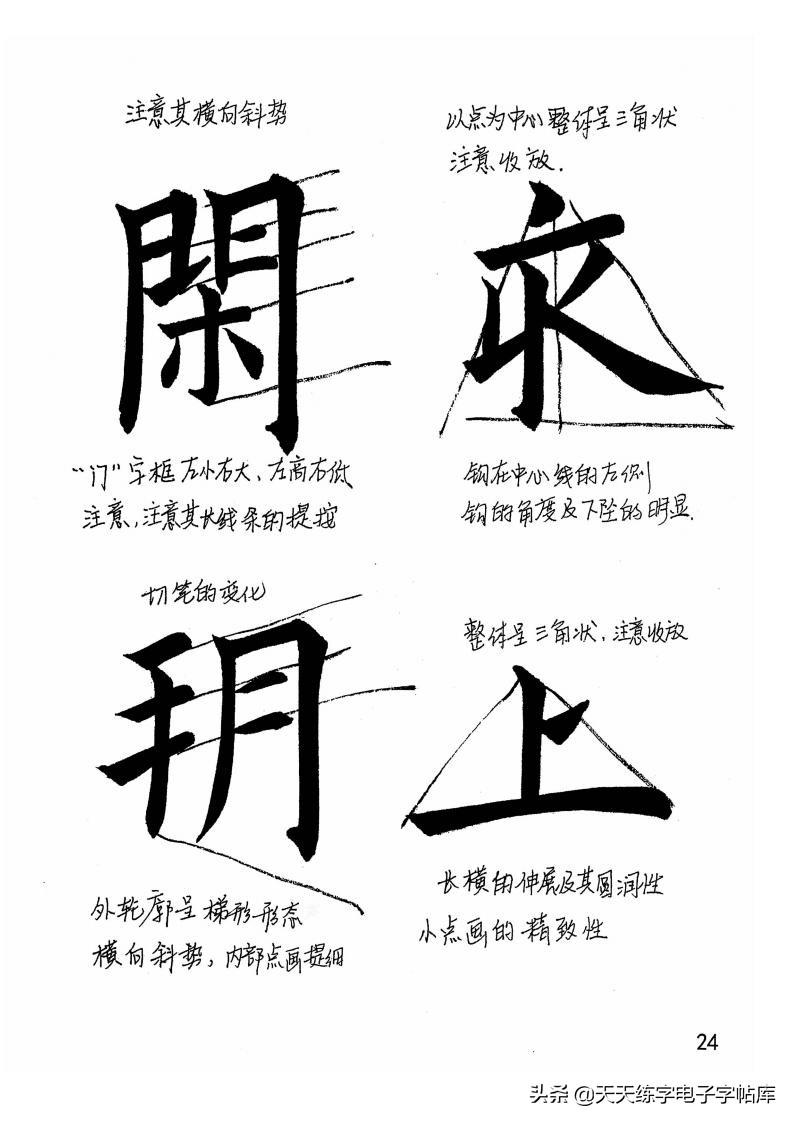 注意其横向斜势
閑
"门"字框左小右大、左高右低
注意,注意其长线条的提按
以点为中心整体呈三角状
注意收放.
永
钩在中心线的左侧
钩的角度及下坠的明显.
切笔的变化
玥
外轮廓呈梯形形态
横向斜势,内部点画提细
整体呈三角状,注意收放
上
长横的伸展及其圆润性
小点画的精致性
24
头条 @天天练字电子字帖库